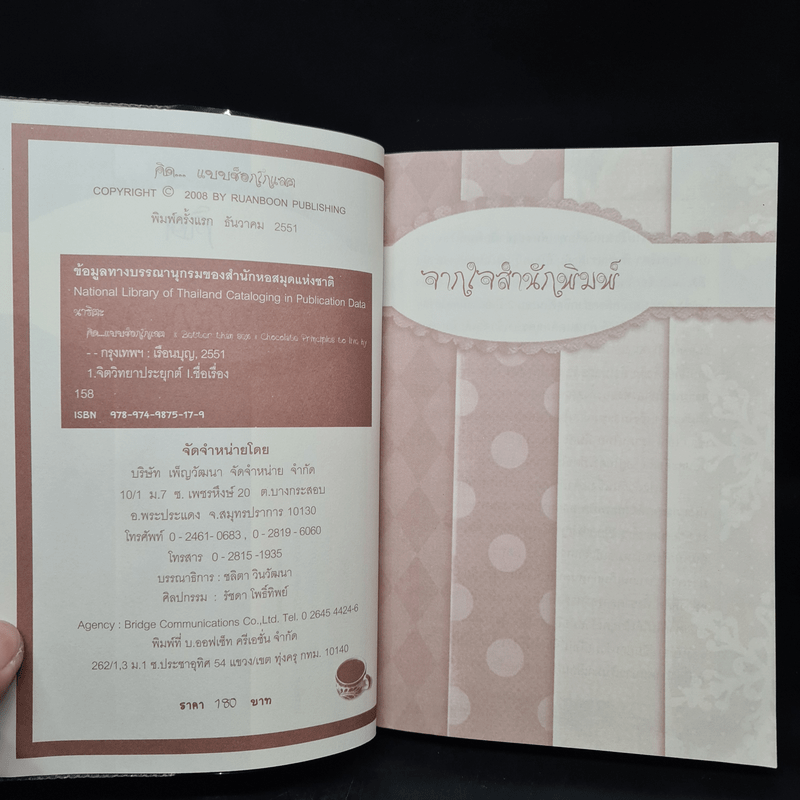 คิด... แบบช็อกโกแลต
COPYRIGHT © 2008 BY RUANBOON PUBLISHING
พิมพ์ครั้งแรก ธันวาคม 2551
ข้อมูลทางบรรณานุกรมของสำนักหอสมุดแห่งชาติ
National Library of Thailand Cataloging in Publication Data
นาริสะ
คิด...แบบช็อกโกแลต : Better than Sex : Chocolate Principles to live by
- - กรุงเทพฯ : เรือนบุญ, 2551
1.จิตวิทยาประยุกต์ I.ชื่อเรื่อง
158
ISBN 978-974-9875-17-9
จัดจำหน่ายโดย
บริษัท เพ็ญวัฒนา จัดจำหน่าย จำกัด
10/1 ม.7 ซ. เพชรหึงษ์ 20 ต.บางกระสอบ
อ.พระประแดง จ.สมุทรปราการ 10130
โทรศัพท์ 0 - 2461- 0683 , 0 - 2819 - 6060
โทรสาร 0 - 2815 -1935
บรรณาธิการ : ชลิตา วินวัฒนา
ศิลปกรรม : รัชดา โพธิ์ทิพย์
Agency : Bridge Communications Co.,Ltd. Tel. 0 2645 4424-6
พิมพ์ที่ บ.ออฟเซ็ท ครีเอชั่น จำกัด
262/1,3 ม.1 ซ.ประชาอุทิศ 54 แขวง/เขต ทุ่งครุ กทม. 10140
ราคา 180 บาท
จากใจสำนักพิมพ์